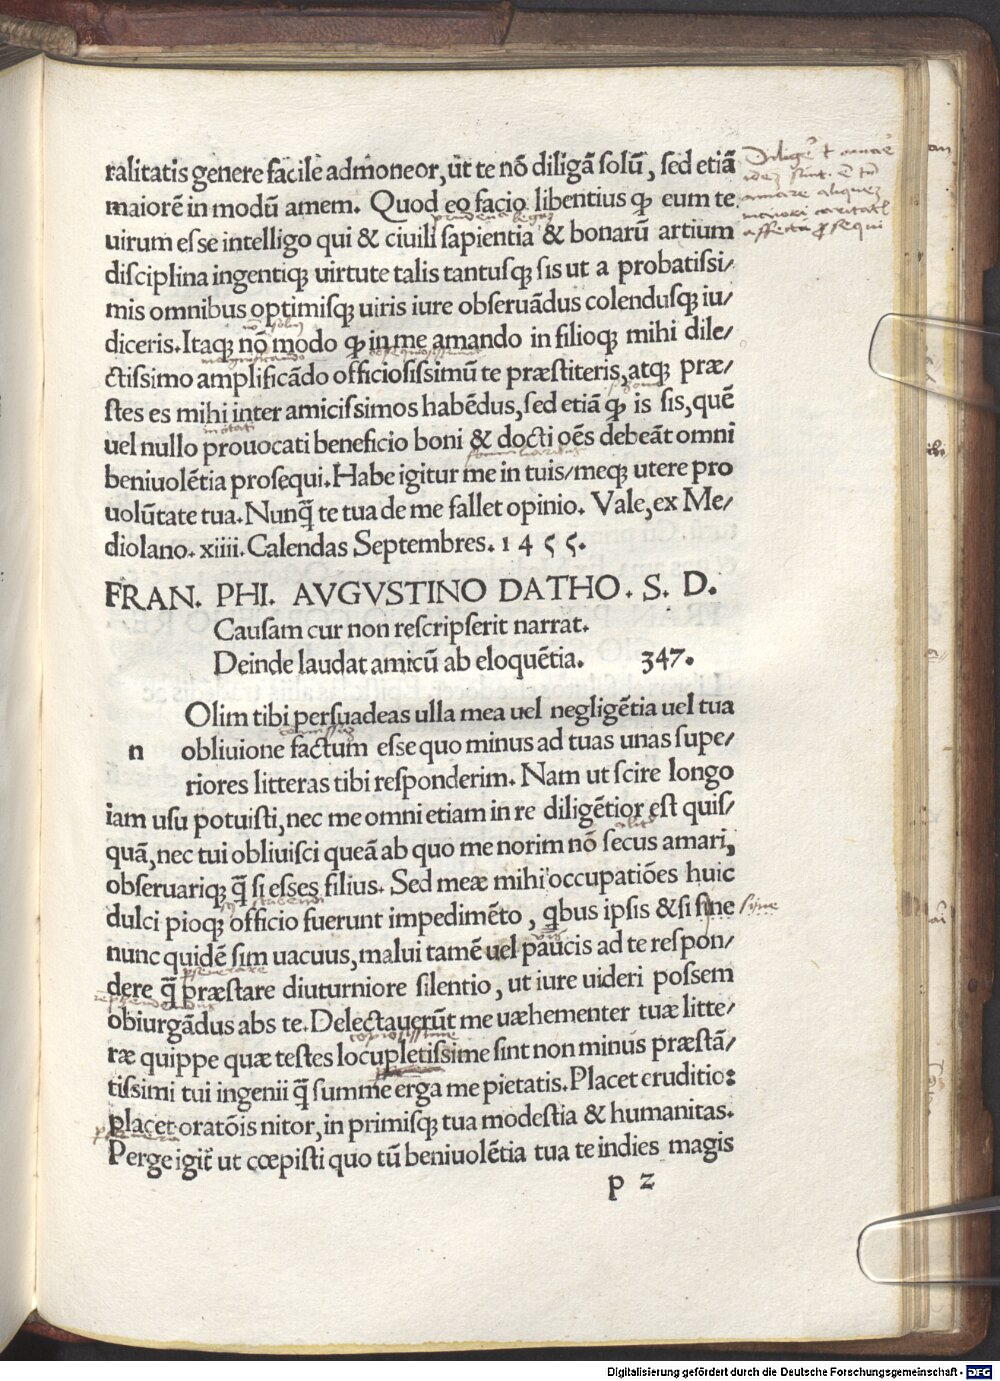 ralitatis genere facile admoneor, ut te nõ diligã ſolũ, ſed etiã
maiorẽ in modũ amem. Quod eo facio libentius ꝙ eum te
uirum eſſe intelligo qui & ciuili ſapientia & bonarũ artium
diſciplina ingentiqꝫ uirtute talis tantuſqꝫ ſis ut a probatiſſi/
mis omnibus optimiſqꝫ uiris iure obſeruãdus colenduſqꝫ iu/
diceris. Itaqꝫ nõ modo ꝙ in me amando in filioqꝫ mihi dile/
ctiſſimo amplificãdo officioſiſſimũ te præſtiteris, atqꝫ præ/
ſtes es mihi inter amiciſſimos habẽdus, ſed etiã ꝙ is ſis, quẽ
uel nullo prouocati beneficio boni & docti oẽs debeãt omni
beniuolẽtia proſequi. Habe igitur me in tuis/meqꝫ utere pro
uolũtate tua. Nunq̃ te tua de me fallet opinio. Vale, ex Me/
diolano. xiiii. Calendas Septembres. 1 4 5 5.
FRAN. PHI. AVGVSTINO DATHO. S. D.
Cauſam cur non reſcripſerit narrat.
Deinde laudat amicũ ab eloquẽtia. 347.
Olim tibi perſuadeas ulla mea uel negligẽtia uel tua
n obliuione factum eſſe quo minus ad tuas unas ſupe/
riores litteras tibi reſponderim. Nam ut ſcire longo
iam uſu potuiſti, nec me omni etiam in re diligẽtior eſt quiſ/
quã, nec tui obliuiſci queã ab quo me norim nõ ſecus amari,
obſeruariqꝫ q̃ ſi eſſes filius. Sed meæ mihi occupatiões huic
dulci pioqꝫ officio fuerunt impedimẽto, qbus ipſis & ſi ſine ſyne
nunc quidẽ ſim uacuus, malui tamẽ uel paucis ad te reſpon/
dere q̃ præſtare diuturniore ſilentio, ut iure uideri poſſem
obiurgãdus abs te. Delectauerũt me uæhementer tuæ litte/
ræ quippe quæ teſtes locupletiſſime ſint non minus præſtã/
tiſſimi tui ingenii q̃ ſumme erga me pietatis. Placet eruditio:
placet oratõis nitor, in primiſqꝫ tua modeſtia & humanitas.
Perge igit̃ ut cœpiſti quo tũ beniuolẽtia tua te indies magis
p 2
Digitalisierung gefördert durch die Deutsche Forschungsgemeinschaft - DFG